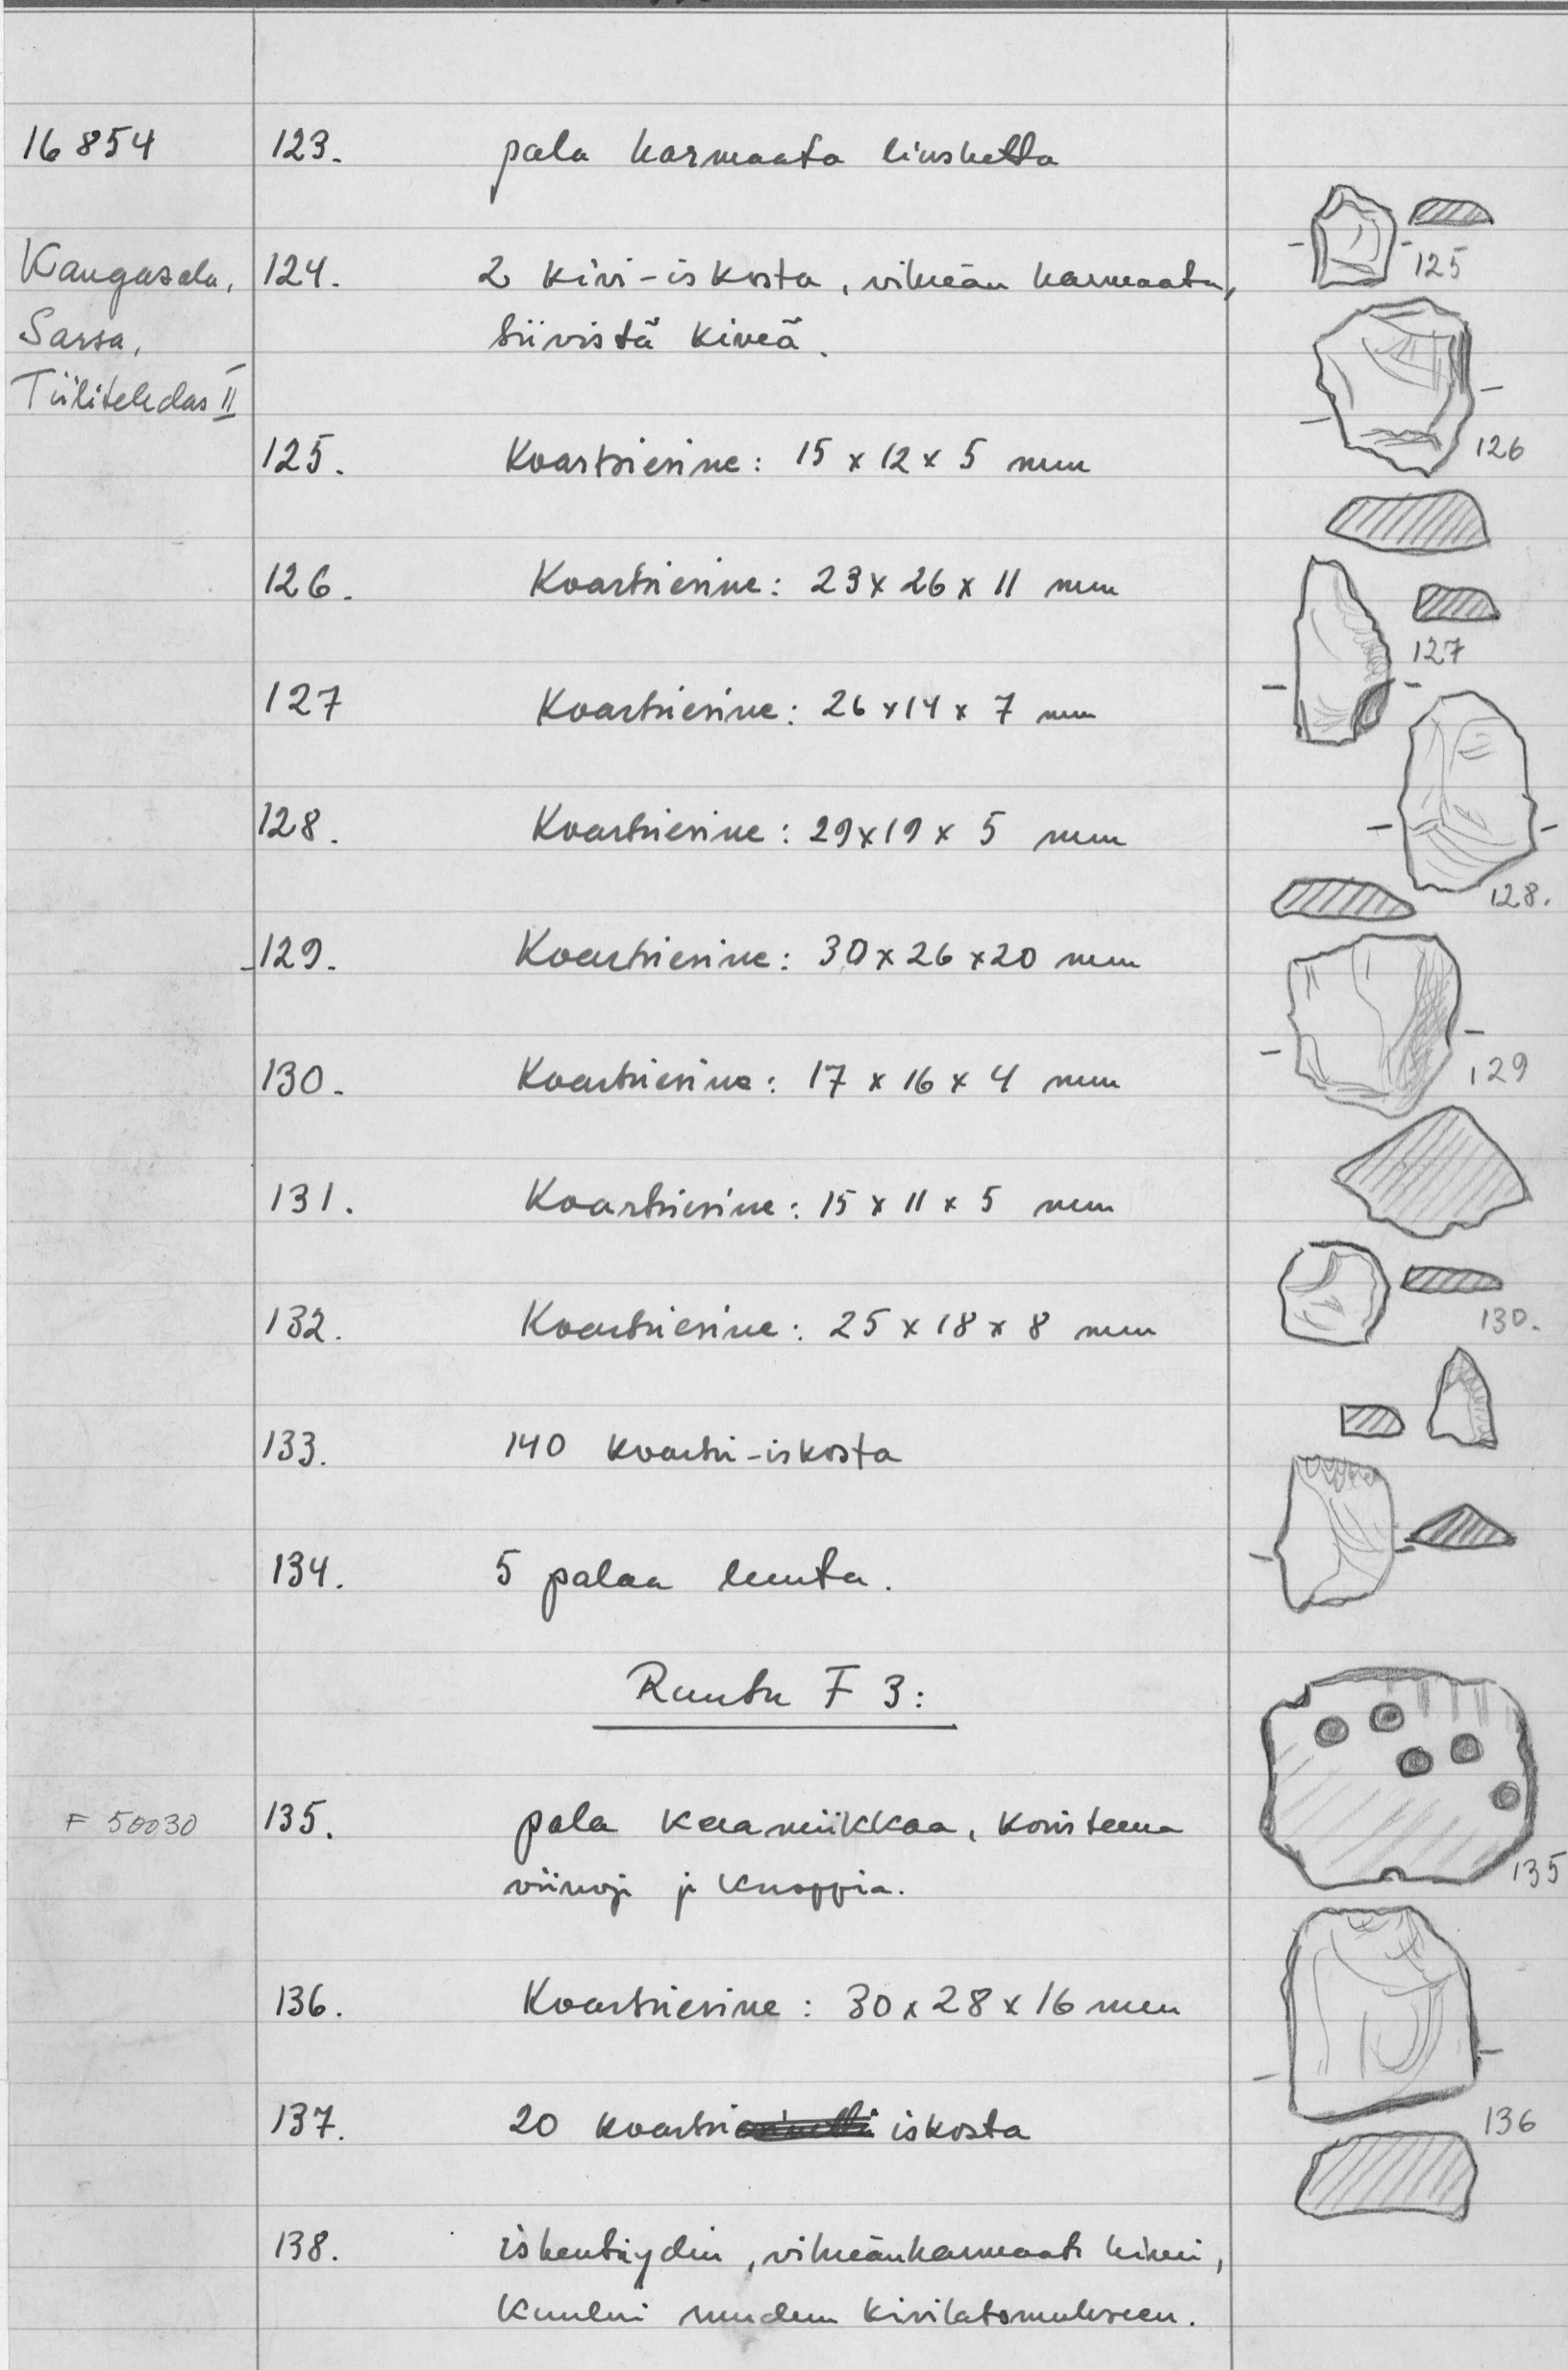 16854
123. pala harmaata liusketta
Kangasala,
Sarsa,
Tiilitehdas II
124. 2 kivi-iskosta, vihreän harmaata,
tiivistä kiveä.
125. Kvartsiesine: 15 x 12 x 5 mm
126. Kvartsiesine: 23 x 26 x 11 mm
127 Kvartsiesine: 26 x 14 x 7 mm
128. Kvartsiesine: 29 x 19 x 5 mm
129. Kvartsiesine: 30 x 26 x 20 mm
130. Kvartsiesine: 17 x 16 x 4 mm
131. Kvartsiesine: 15 x 11 x 5 mm
132. Kvartsiesine: 25 x 18 x 8 mm
133. 140 kvartsi-iskosta
134. 5 palaa luuta.
Ruutu F 3:
F 50030
135. pala keramiikkaa, koristeena
viivoja ja kuoppia.
136. Kvartsiesine: 30 x 28 x 16 mm
137. 20 kvartsi iskosta
138. iskentäydin, vihreänharmaata kiveä,
kuului ruudun kivilatomukseen.
125
126
127
128.
129
130.
135
136